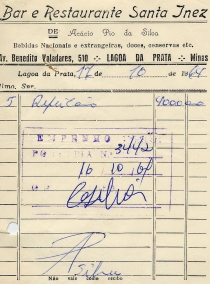 Bar e Restaurante Santa Inez
DE
Acácio Pio da Silva
Bebidas Nacionais e extrangeiras, doces, conservas etc.
Av. Benedito Valadares, 510 -:- LAGOA DA PRATA -:- Minas
Lagoa da Prata, 17 de 10 de 1964
Ilmo. Snr.
5 Refeições
EMPENHO
Nº 3442
16 10 64
Silva
Não vale como recibo